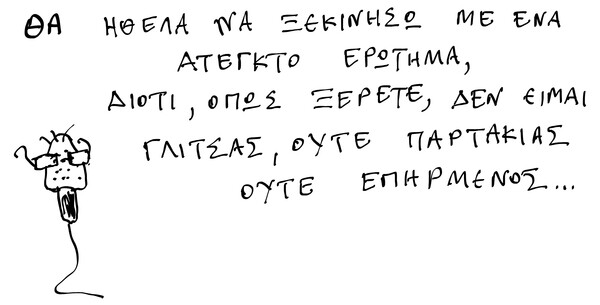 ΘΑ ΗΘΕΛΑ ΝΑ ΞΕΚΙΝΗΣΩ ΜΕ ΕΝΑ
ΑΤΕΓΚΤΟ ΕΡΩΤΗΜΑ,
ΔΙΟΤΙ, ΟΠΩΣ ΞΕΡΕΤΕ, ΔΕΝ ΕΙΜΑΙ
ΓΛΙΤΣΑΣ, ΟΥΤΕ ΠΑΡΤΑΚΙΑΣ
ΟΥΤΕ ΕΠΗΡΜΕΝΟΣ...